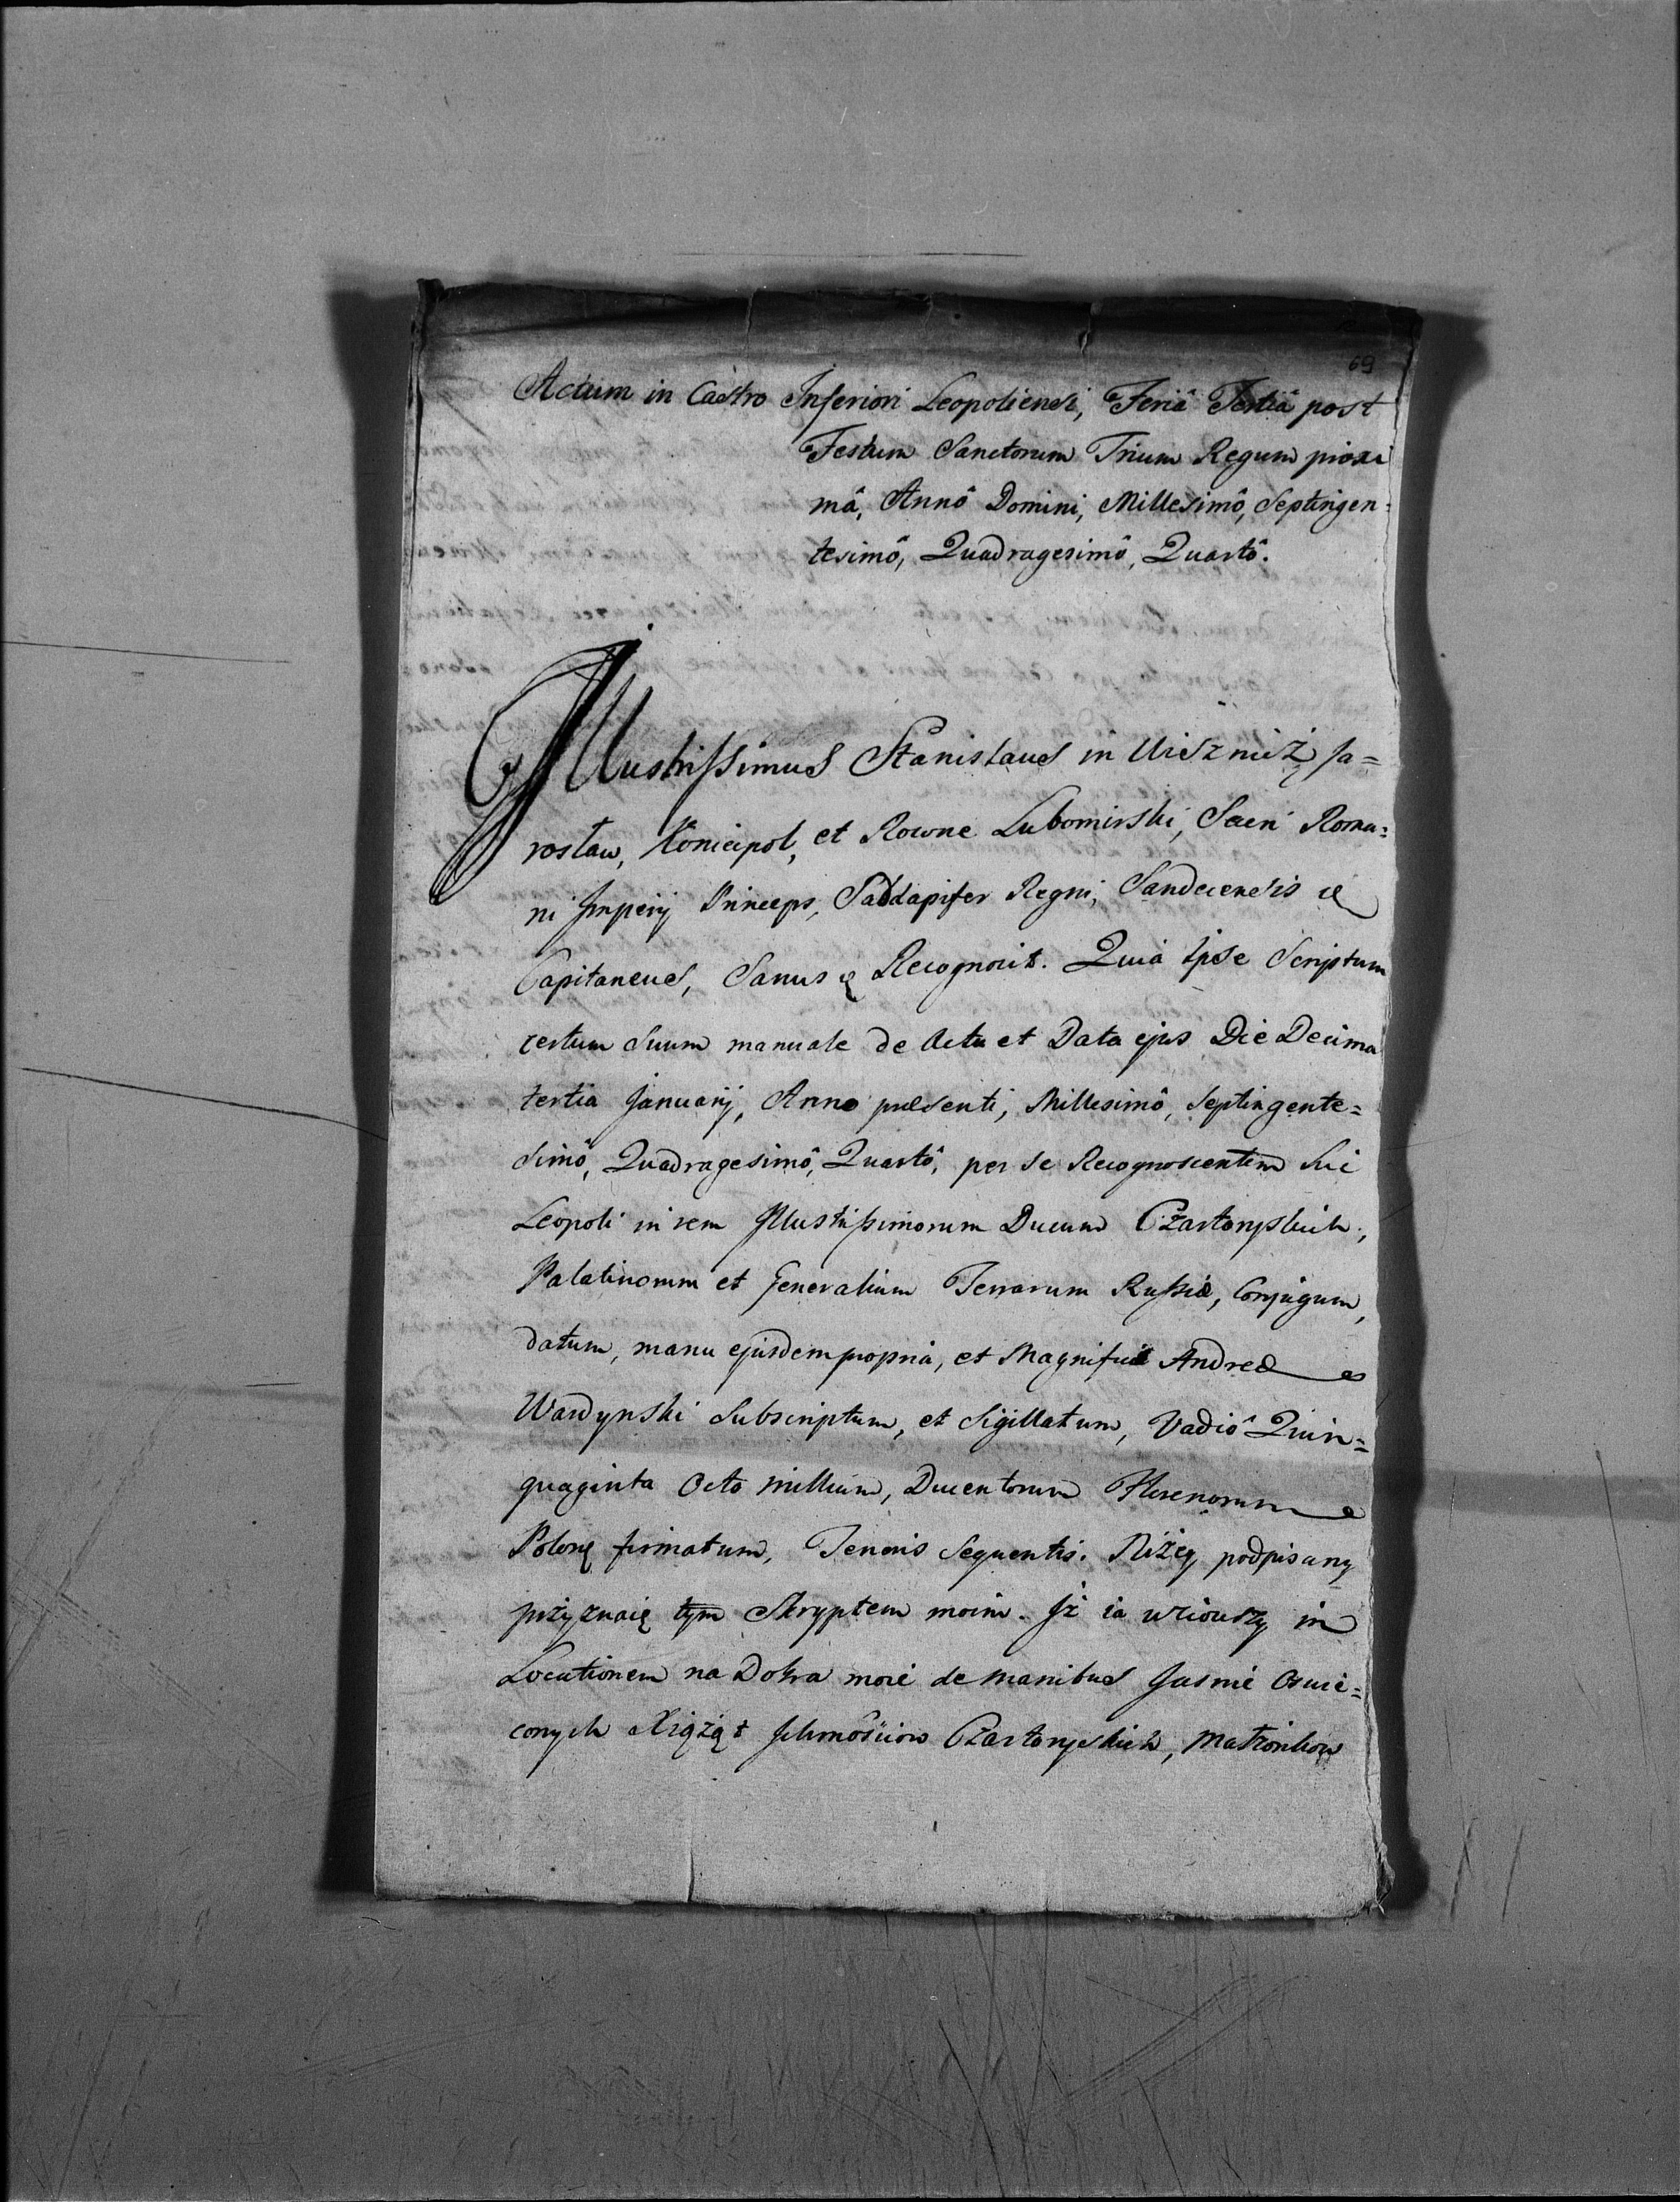 69
Actum in Castro Inferiori Leopoliensi, Feriâ Tertiâ post
Festum Sanctorum Trium Regum proxi
mâ, Annô Domini, Millesimô, Septingen=
tesimô, Quadragesimô, Quartô.
Illustrissimus Stanislaus in Wisznicz Ja=
rosław, Koniecpol, et Rowne Lubomirski, Sacri Roma=
ni Imperij Princeps, Subdapifer Regni, Sandecensis &
Capitaneus, Sanus & Recognovit. Quia ipse Scriptum
certum Suum manuale de Actu et Data ejus Die Decima
tertia Januarij, Anno præsenti, Millesimô, Septingente=
simô, Quadragesimô, Quartô, per Se Recognoscentem hic
Leopoli in rem Illustrissimorum Ducum Czartoryskich,
Palatinorum et Generalium Terrarum Russiæ, Conjugum,
datum, manu ejusdem propria, et Magnifici Andreæ
Wardynski Subscriptum, et Sigillatum, Vadiô Quin=
quaginta Octo millium, Ducentorum Florenorum
Polonę firmatum, Tenoris Sequentis. Niżey podpisany
przyznaię tym Skryptem moim. Iż ia wziowszy in
Locationem na Dobra moie de manibus Jasnie Oswie=
conych Xiążąt Ichmościow Czartoryskich, Małżonkow